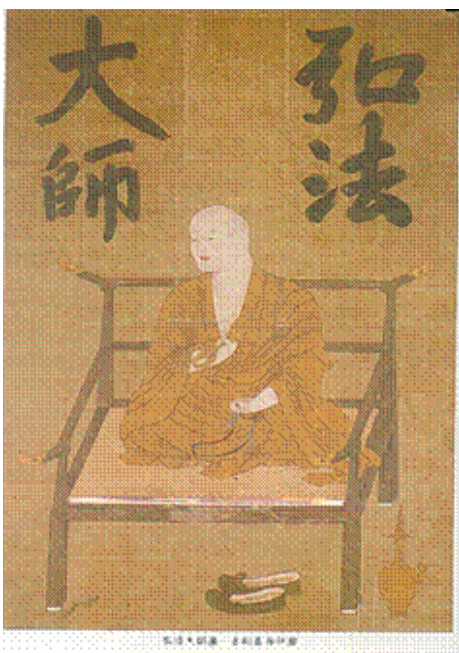 弘法
大師
弘法大師